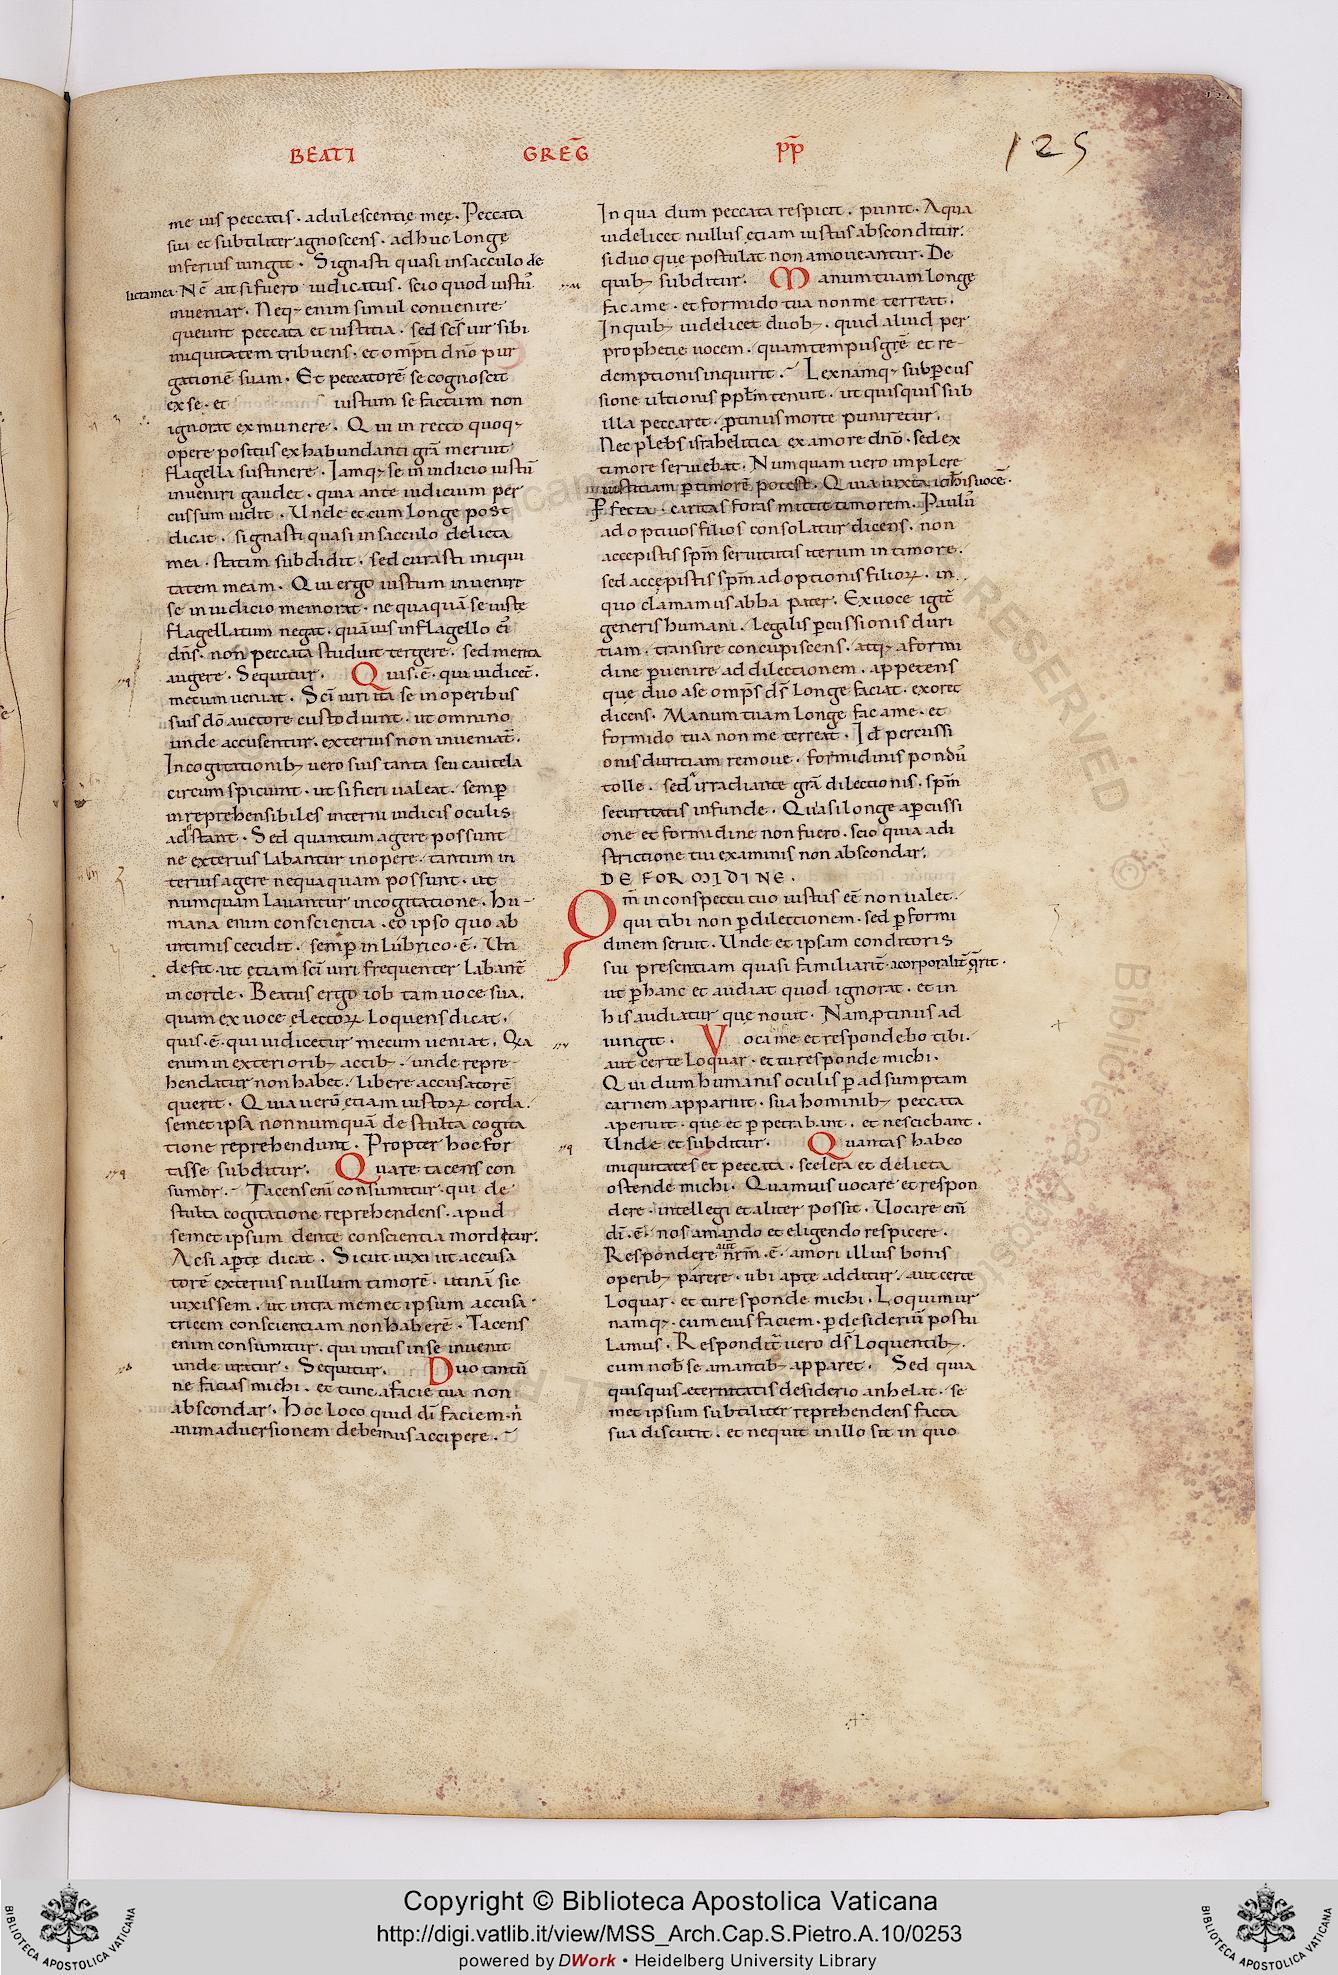 BEATI GREḠ PP̄
125
me uis peccatis · adulescentie meę · Peccata
sua et subtiliter agnoscens · adhuc longe
inferius iungit · Signasti quasi in sacculo de
licta mea · Nē ait si fuero iudicatus · scio quod iustū
inueniar · Neq; enim simul conuenire
queunt peccata et iustitia · sed sc̄s uir sibi
iniquitatem tribuens · et omp̄ti dn̄o pur
gationē suam · Et peccatorē se cognoscit
ex se · et iustum se factum non
ignorat ex munere · Qui in recto quoq;
opere positus ex habundanti grā meruit
flagella sustinere · Iamq; se in iudicio iustū
inueniri gaudet · quia ante iudicium per
cussum uidit · Unde et cum longe post
dicat · signasti quasi in sacculo delicta
mea · statim subdidit · sed curasti iniqui
tatem meam · Qui ergo iustum inuenire
se in iudicio memorat · nequaquā se iuste
flagellatum negat · quāuis in flagello ei᷒
dn̄s · non peccata studuit tergere · sed merita
augere · Sequitur · Quis · ē · qui iudicet̄ ·
mecum ueniat · Sc̄i uiri ita se in operibus
suis dō auctore custodiunt · ut omnino
unde accusentur · exterius non inueniat̄ ·
In cogitationib; uero suis tanta seu cautela
circumspiciunt · ut si fieri ualeat · semp̄
inreprehensibiles interni iudicis oculis
adstant · Sed quantum agere possunt
ne exterius labantur in opere · tantum in
terius agere nequaquam possunt · ut
numquam lauantur in cogitatione · Hu-
mana enim conscientia · eo ipso quo ab
intimis cecidit · semp̄ in lubrico · ē · Un
de fit · ut etiam sc̄i uiri frequenter labant̄
in corde · Beatus ergo iob tam uoce sua ·
quam ex uoce electoꝝ loquens dicat ·
quis · ē · qui iudicetur mecum ueniat · Qia
enim in exteriorib; actib; · unde repre-
hendatur non habet · libere accusatorē
querit · Quia uerū etiam iustoꝝ corda ·
semetipsa nonnumquā de stulta cogita
tione reprehendunt · Propter hoc for
tisse subditur · Quare tacens con
sumor · Tacens eni consumitur · qui de
stulta cogitatione reprehendens · apud
semetipsum dente conscientia mordetur ·
Ac si ap̄te dicat · Sicut uixi ut accusa
torē exterius nullum timorē · utinā sic
uixissem · ut intra memetipsum accusa
tricem conscientiam non haberē · Tacens
enim consumitur · qui intus in se inuenit
unde uritur · Sequitur · Duo tantū
ne facias michi · et tunc a facie tua non
abscondar · Hoc loco quid di faciem · n̄
animaduersionem debemus accipere ·
In qua dum peccata respicit · punit · A qua
uidelicet nullus etiam iustus absconditur ·
si duo que postulat non amoueantur · De
quib; subditur · Manum tuam longe
fac a me · et formido tua non me terreat ·
In quib; uidelicet duob; · quid aliud per
prophetie uocem · quam tempus grē et re-
demptionis inquirit · Lex namq; sub p̄cus
sione ultionis pplm tenuit · ut quisquis sub
illa peccaret · p̄tinus morte puniretur ·
Nec plebs israhelitica ex amore dn̄o · sed ex
timore seruiebat · Numquam uero implere
iustitiam p̄ timorē potest · Quia iuxta ioh̄is uocē ·
P̄fecta · caritas foras mittit timorem · Paulu᷒
adoptiuos filios consolatur dicens · non
accepistis sp̄m seruitutis iterum in timore ·
sed accepistis sp̄m adoptionis filioꝝ · in
quo clamamus abba pater · Ex uoce igit̄
generis humani · legalis p̄cussionis duri
tiam · transire concupiscens · atq; a formi
dine p̄uenire ad dilectionem · appetens
que duo a se omp̄s ds̄ longe faciat · exorat
dicens · Manum tuam longe fac a me · et
formido tua non me terreat · Id percussi
onis duritiam remoue · formidinis pondu᷒
tolle · sed irradiante grā dilectionis · sp̄m
securitatis infunde · Quasi longe a p̄cussi
one et formidine non fuero · scio quia a di
strictione tui examinis non abscondar ·
DE FORMIDINE ·
Qm̄ in conspectu tuo iustus eē non ualet ·
qui tibi non p̄ dilectionem · sed p̄ formi
dinem seruit · Unde et ipsam conditoris
sui presentiam quasi familiarit̄ · acorporalit̄ q̄rit ·
ut p̄ hanc et audiat quod ignorat · et in
his audiatur que nouit · Nam p̄tinus ad
iungit · Voca me et respondebo tibi ·
aut certe loquar · et tu responde michi ·
Qui dum humanis oculis p̄ adsumptam
carnem apparuit · sua hominib; peccata
aperuit · que et p̄petrabant · et nesciebant ·
Unde et subditur · Quantas habeo
iniquitates et peccata · scelera et delicta
ostende michi · Quamuis uocare et respon
dere · intellegi et aliter possit · Uocare eni
di · ē · nos amando et eligendo respicere ·
Respondere aut̄ n̄rm · ē · amori illius bonis
operib; parere · ubi apte additur · aut certe
loquar · et tu responde michi · Loquimur
namq; · cum eius faciem · p̄ desideriū postu
lamus · Respondit̄ uero ds̄ loquentib; ·
cum nob̄ se amantib; apparet · Sed quia
quisquis eternitatis desiderio anhelat · se
met ipsum subtiliter reprehendens facta
sua discutit · et nequit in illo sit in quo
Copyright © Biblioteca Apostolica Vaticana
http://digi.vatlib.it/view/MSS_Arch.Cap.S.Pietro.A.10/0253
powered by DWork • Heidelberg University Library
BIBLIOTECA APOSTOLICA VATICANA
BIBLIOTECA APOSTOLICA VATICANA